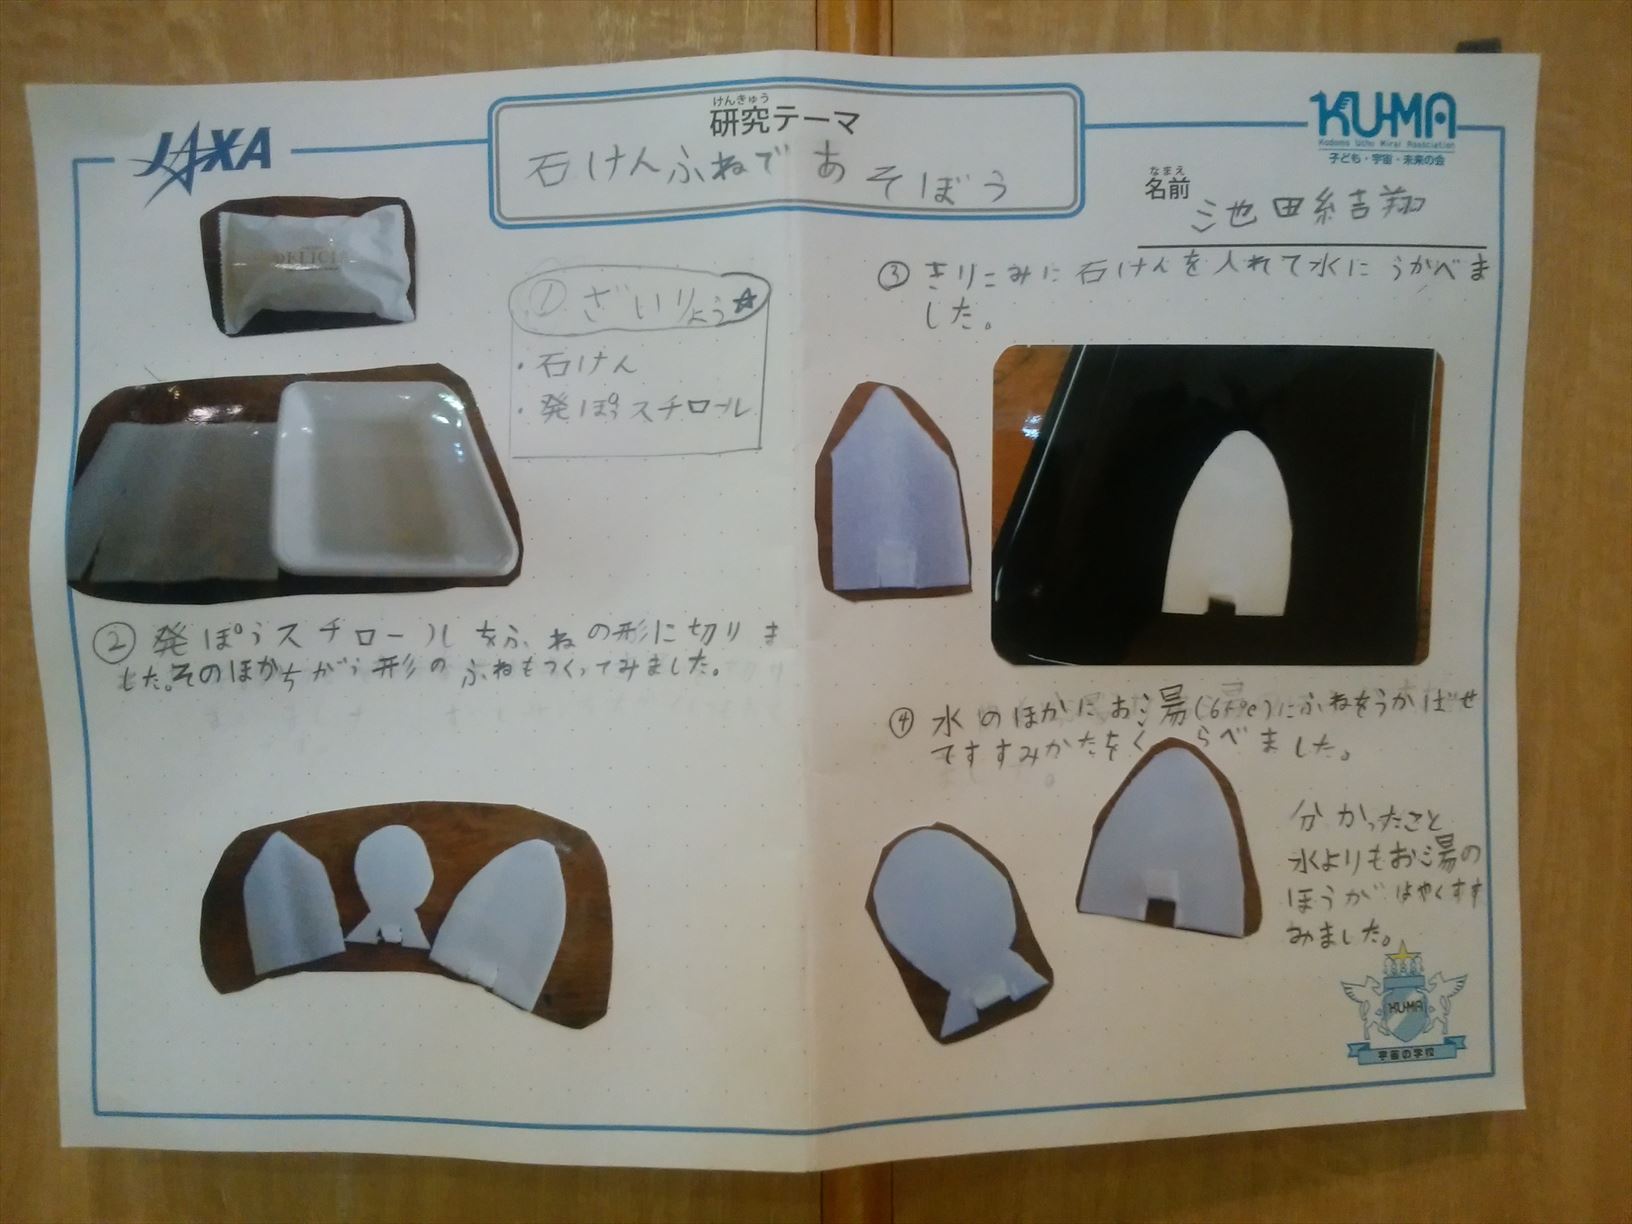 JAXA
けんきゅう
研究テーマ
石けんふねであそぼう
KU-MA
Kodomo Uchu Mirai Association
子ども・宇宙・未来の会
なまえ
名前
池田結吉翔
DELICIA
① ざいりょう☆
・石けん
・発ぽうスチロール
② 発ぽうスチロールをふねの形に切りま
した。そのほかちがう形のふねもつくってみました。
③ きりこみに石けんを入れて水にうかべま
した。
④ 水のほかにお湯
にふねをうかばせ
てすすみかたをくらべました。
分かったこと
水よりもお湯の
ほうがはやくすす
みました。
KU-MA
宇宙の学校